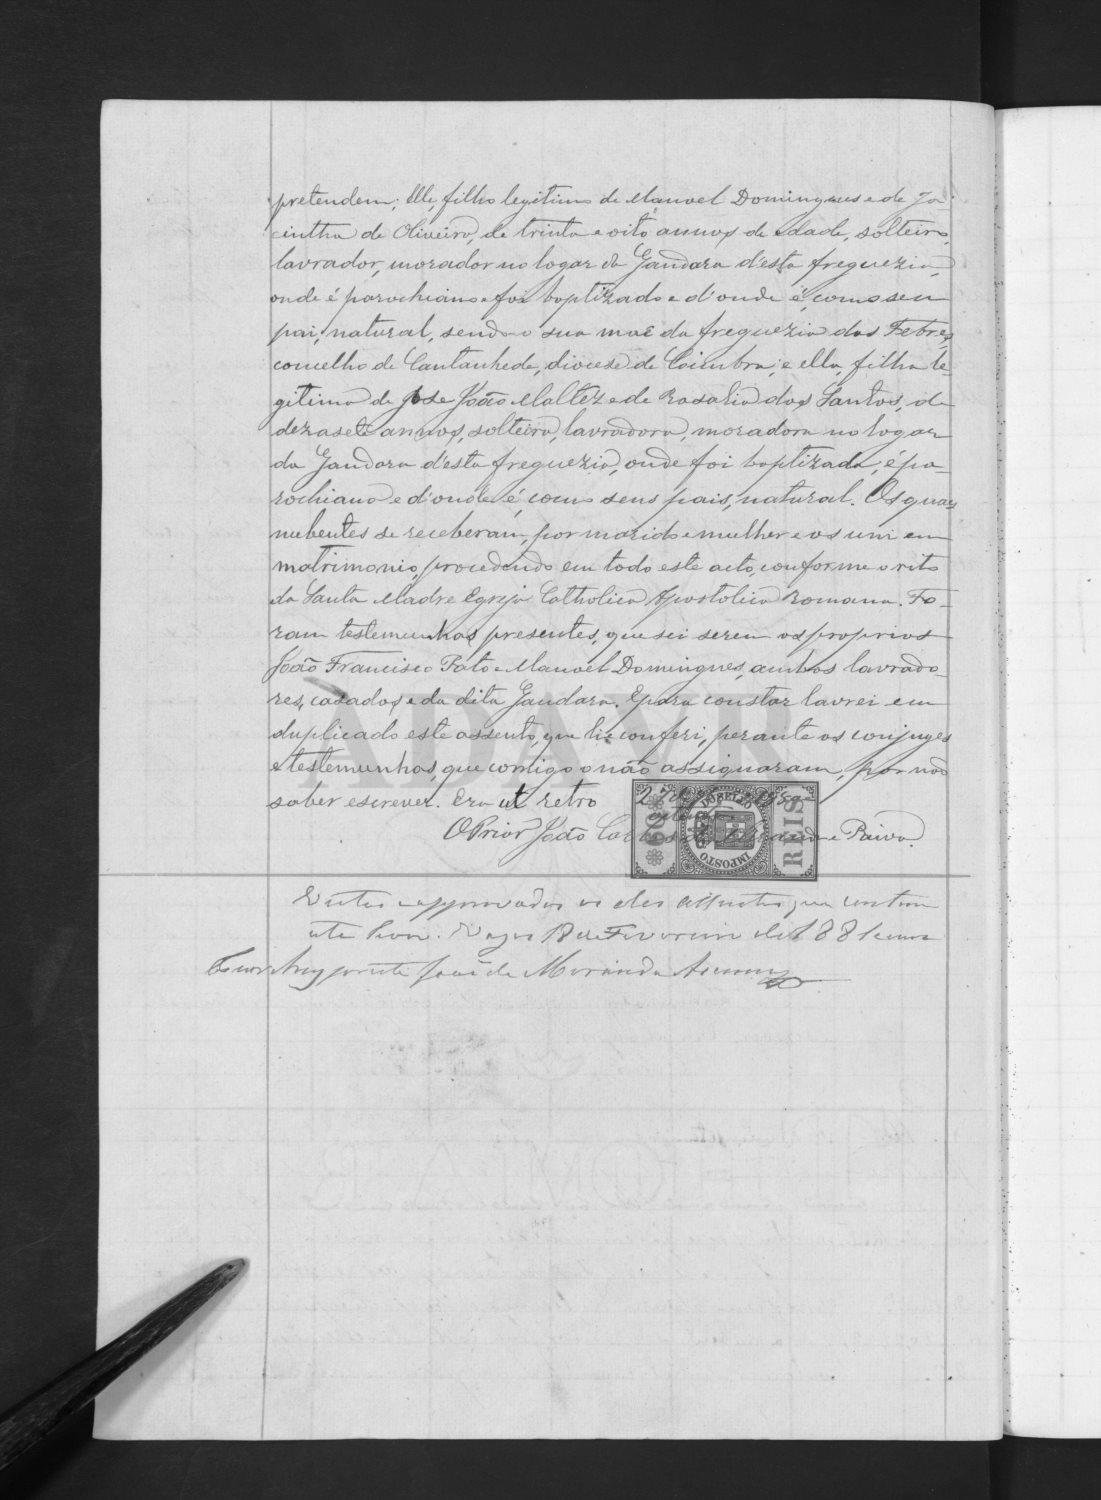 pretendem; elle, filho legitimo de Manoel Domingues e de Ja-
cintha de Oliveira, de trinta e oito annos de edade, solteiro,
lavrador, morador no logar da Gandara d'esta freguezia,
onde é parochiano e foi baptizado e d'onde é, como seu
pai, natural, sendo a sua mãe da freguezia das Febres,
concelho de Cantanhede, diocese de Coimbra; e ella, filha le-
gitima de José João Maltez e de Rosalia dos Santos, de
dezasete annos, solteira, lavradora, moradora no logar
da Gandara d'esta freguezia, onde foi baptizada, é pa-
rochiana e d'onde é, como seus pais, natural. Os quaes
nubentes se receberam, por marido e mulher e os uni em
matrimonio, procedendo em todo este acto, conforme o rito
da Santa Madre Egreja Catholica Apostolica Romana. Fo-
ram testemunhas presentes, que sei serem os proprios
João Francisco Pato e Manoel Domingues, ambos lavrado-
res, casados e da dita Gandara. E para constar lavrei em
duplicado este assento, que li e conferi, perante os conjuges
e testemunhas, que comigo o não assignaram, por não
saber escrever. Era ut retro
O Prior João Paiva.
60 IMPOSTO DO SELLO REIS
Vistos e approvados os assentos que contem
este livro. Vagos 18 de Fevereiro de 1881
José de Miranda
ADAVR